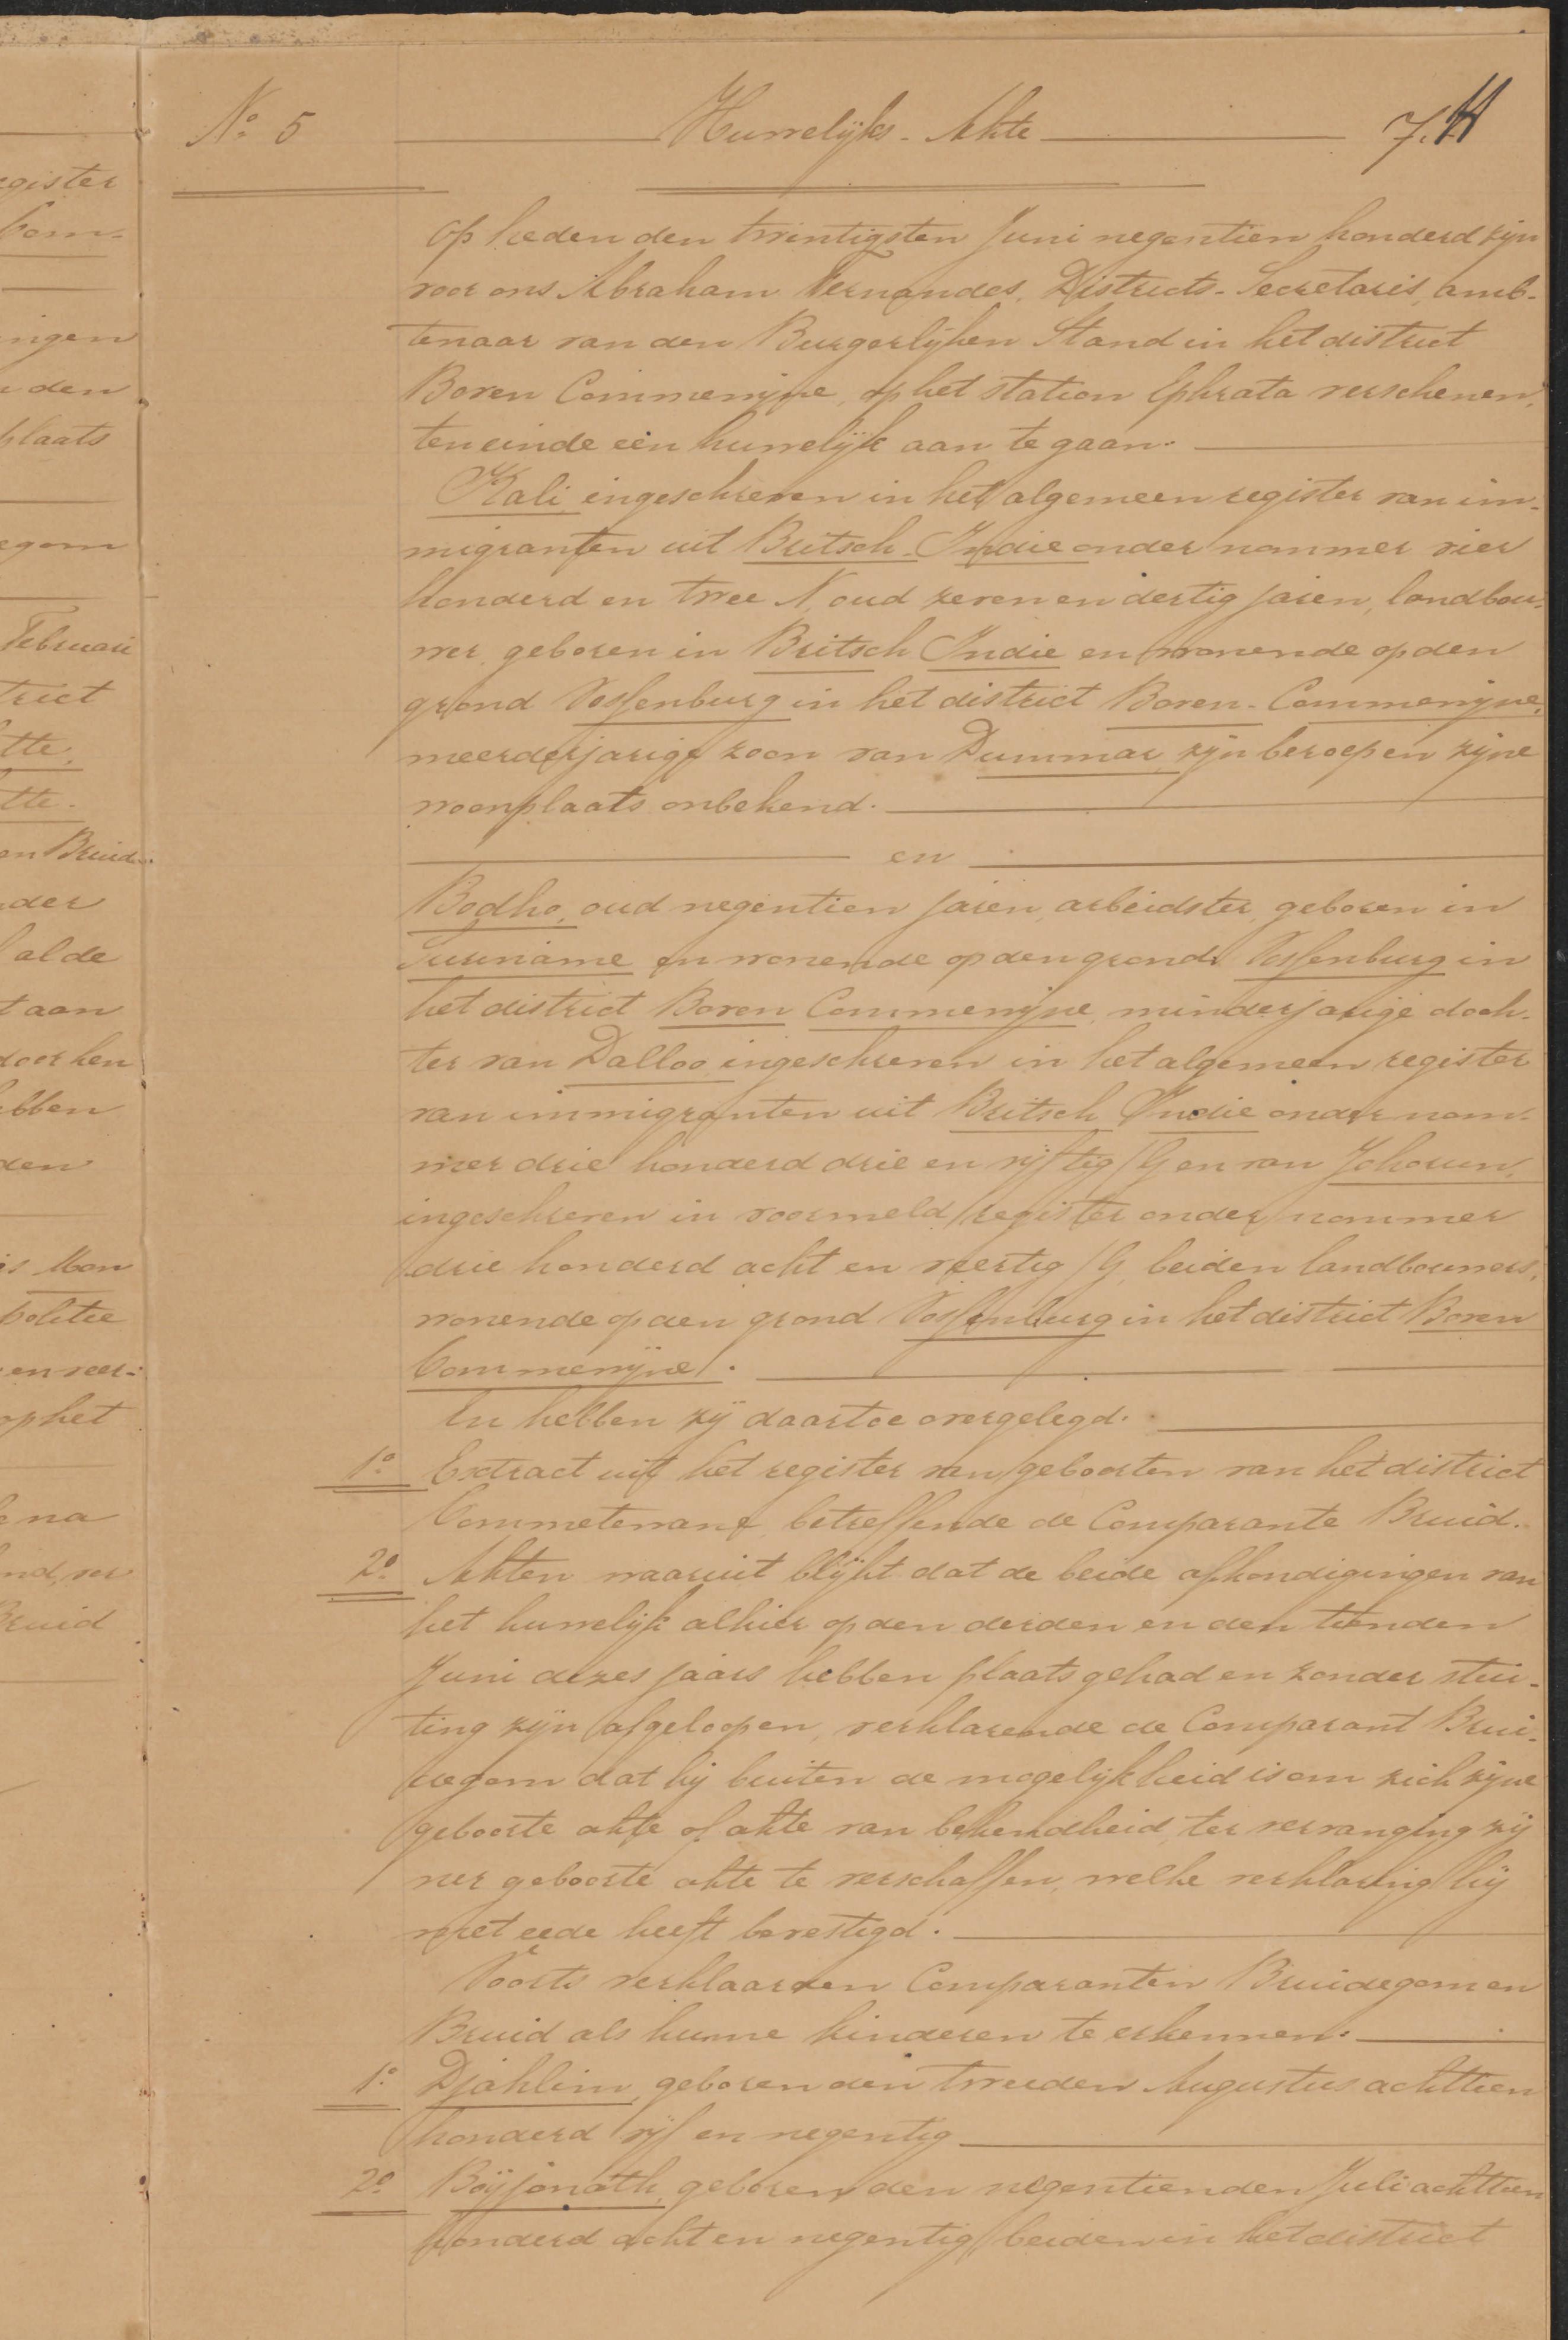 egister
Com-
ingen
den
plaats
egom
Februari
trict
tte.
tte.
en Bruid
der
alde
t aan
door hen
ebben
den
is Mon
politie
en veer-
op het
na
nd, ver
Bruid
No. 5 Huwelijks-Akte 7.
Op heden den twintigsten Juni negentien honderd zijn
voor ons Abraham Fernandes, Districts-Secretaris, amb-
tenaar van den Burgerlijken Stand in het district
Boven Commewijne, op het station Ephrata verschenen,
ten einde een huwelijk aan te gaan.
Kali, ingeschreven in het algemeen register van im-
migranten uit Britsch-Indie onder nommer vier
honderd en twee N, oud zeven en dertig jaren, landbou-
wer, geboren in Britsch Indie en wonende op den
grond Vossenburg in het district Boven-Commewijne,
meerderjarige zoon van Dummar, zijn beroep en zijne
woonplaats onbekend.
en
Bodho, oud negentien jaren, arbeidster, geboren in
Suriname en wonende op den grond Vossenburg in
het district Boven Commewijne, minderjarige doch-
ter van Dalloo, ingeschreven in het algemeen register
van immigranten uit Britsch Indie onder nom-
mer drie honderd drie en vijftig /G en van Johorun,
ingeschreven in voormeld register onder nommer
drie honderd acht en veertig /G, beiden landbouwers,
wonende op den grond Vossenburg in het district Boven
Commewijne.
En hebben zij daartoe overgelegd.
1o. Extract uit het register van geboorten van het district
Commetewane, betreffende de Comparante Bruid.
2o. Akten waaruit blijkt dat de beide afkondigingen van
het huwelijk alhier op den derden en den tienden
Juni dezes jaars hebben plaats gehad en zonder stui-
ting zijn afgeloopen, verklarende de Comparant Brui-
degom dat hij buiten de mogelijkheid is om zich zijne
geboorte akte of akte van bekendheid, ter vervanging zij
ner geboorte akte te verschaffen, welke verklaring hij
met eede heeft bevestigd.
Voorts verklaarden Comparanten Bruidegom en
Bruid als hunne kinderen te erkennen.
1o. Djahlim, geboren den tweeden Augustus achttien
honderd vijf en negentig
2o. Boyjonath, geboren den negentienden Juli achttien
honderd acht en negentig, beiden in het district